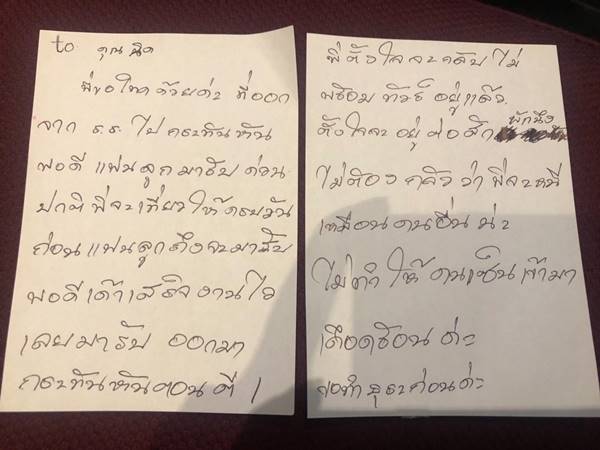 to คุณ นิด
พี่ขอโทษด้วยค่ะ ที่ออก
จาก ร.ร. ไป กระทันหัน
พอดี แฟนลูกมารับ ก่อน
ปกติ พี่จะเที่ยวให้ครบวัน
ก่อน แฟนลูกถึงจะมารับ
พอดีเค้าเสร็จงานไว
เลยมารับ ออกมา
กระทันหันตอนตี 1
พี่ตั้งใจจะกลับไม่
พร้อม ทัวร์ อยู่แล้ว
ตั้งใจจะอยู่ต่อสัก พักนึง
ไม่ต้อง กลัว ว่า พี่จะหนี
เหมือนคนอื่น น่ะ
ไม่ทำ ให้ คนเซ็นเข้ามา
เดือดร้อน ค่ะ
ขอทำธุระก่อนค่ะ